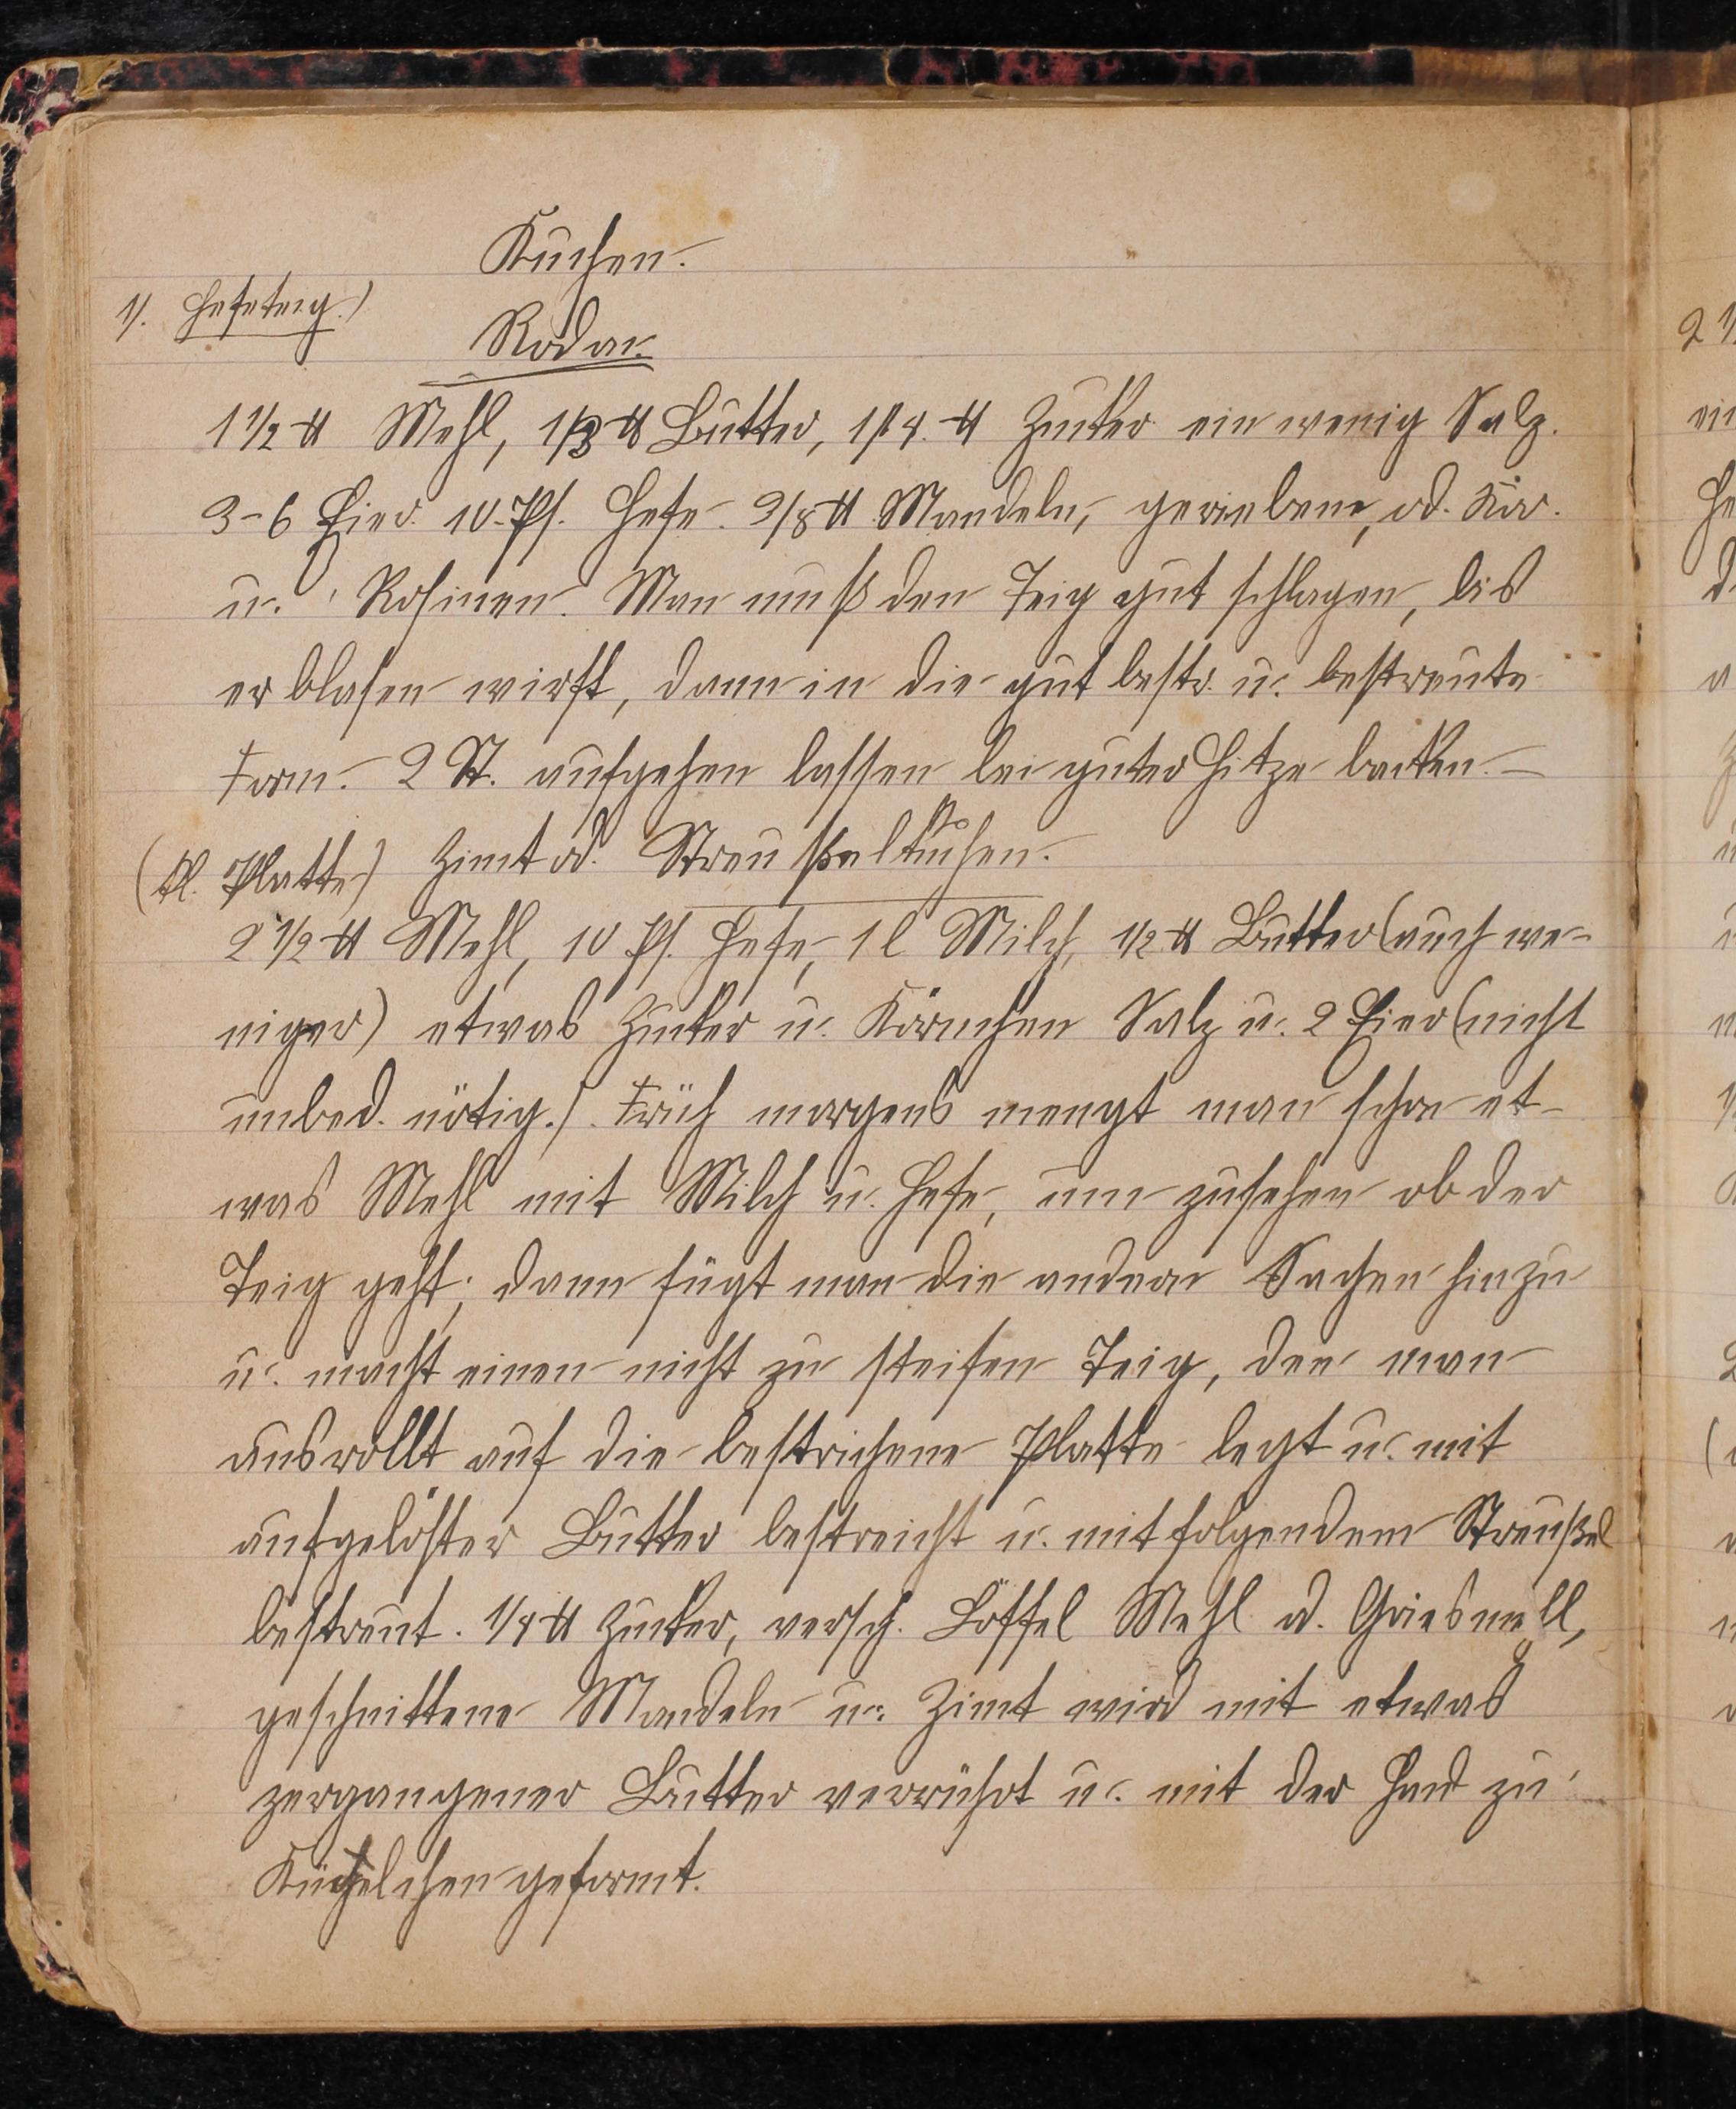 Kuchen.
1). Hefeteig.)
Rodon.
1 1/2 ℔ Mehl, 1/3 ℔ Butter, 1/4 ℔ Zucker ein wenig Salz.
3-6 Eier. 10 Pf. Hefe. 3/8 ℔ Mandeln, geriebene, od. Kor.
u. Rosinen. Man muß den Teig gut schlagen, bis
er blasen wirft, dann in die gut bestr. u. bestreute
Form. 2 St. aufgehen lassen bei guter Hitze backen. –
(kl. Platte) Zimt od. Streußelkuchen.
2 1/2 ℔ Mehl, 10 Pf. Hefe, 1 l Milch, 1/2 ℔ Butter (auch we-
niger) etwas Zucker u. Körnchen Salz u. 2 Eier (nicht
unbed. nötig.) Früh morgens mengt man schon et-
was Mehl mit Milch u. Hefe, um zusehen ob der
Teig geht; dann fügt man die andern Sachen hinzu
u. macht einen nicht zu steifen Teig, den man
ausrollt auf die bestrichene Platte legt u. mit
aufgelöster Butter bestreicht u. mit folgendem Streußel
bestreut. 1/4 ℔ Zucker, versch. Löffel Mehl od. Griesmehl,
geschnittene Mandeln u. Zimt wird mit etwas
zergangener Butter verrührt u. mit der Hand zu
Kügelchen geformt.